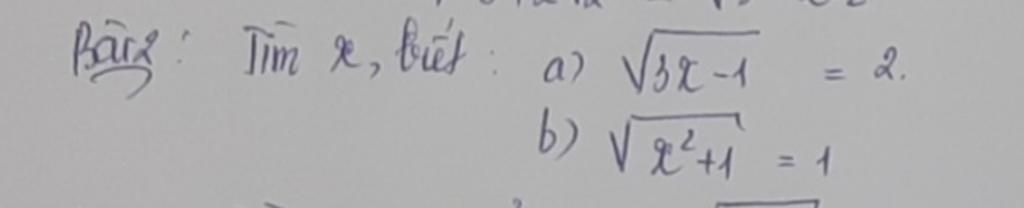 Bài 2: Tìm x, biết: a) √(3x-1) = 2.
b) √(x²+1) = 1